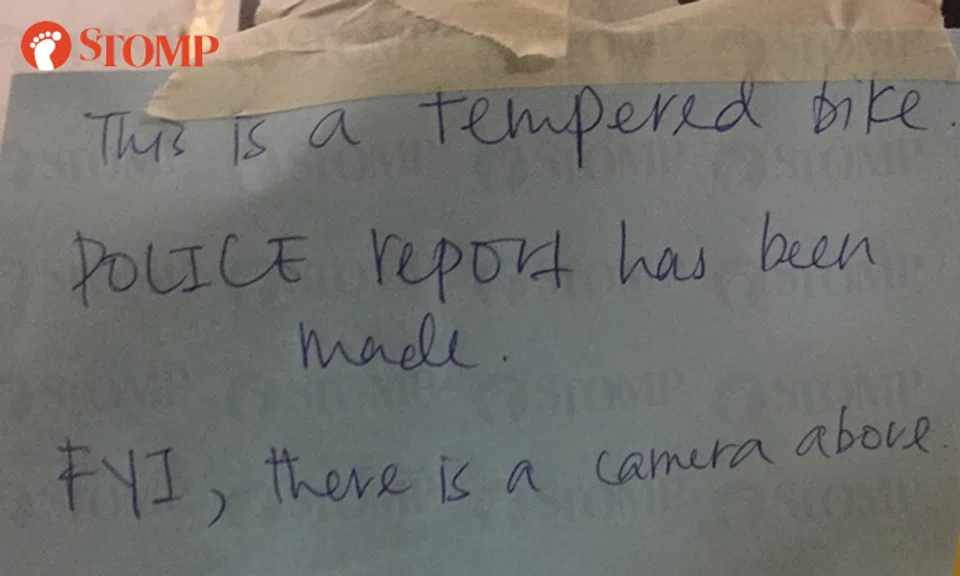 STOMP
This is a tempered bike.
POLICE report has been
made.
FYI, there is a camera above.